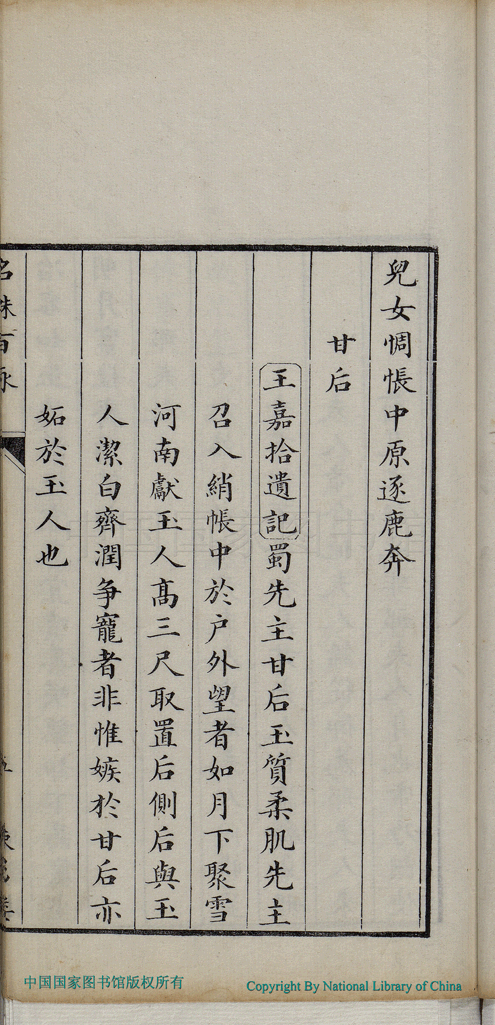 兒女惆悵中原逐鹿奔
甘后
王嘉拾遺記蜀先主甘后玉質柔肌先主
召入綃帳中於户外望者如月下聚雪
河南獻玉人髙三尺取置后側后與玉
人潔白齊潤争寵者非惟嫉於甘后亦
妬於玉人也
名姝百詠
中国国家图书馆版权所有
Copyright By National Library of China